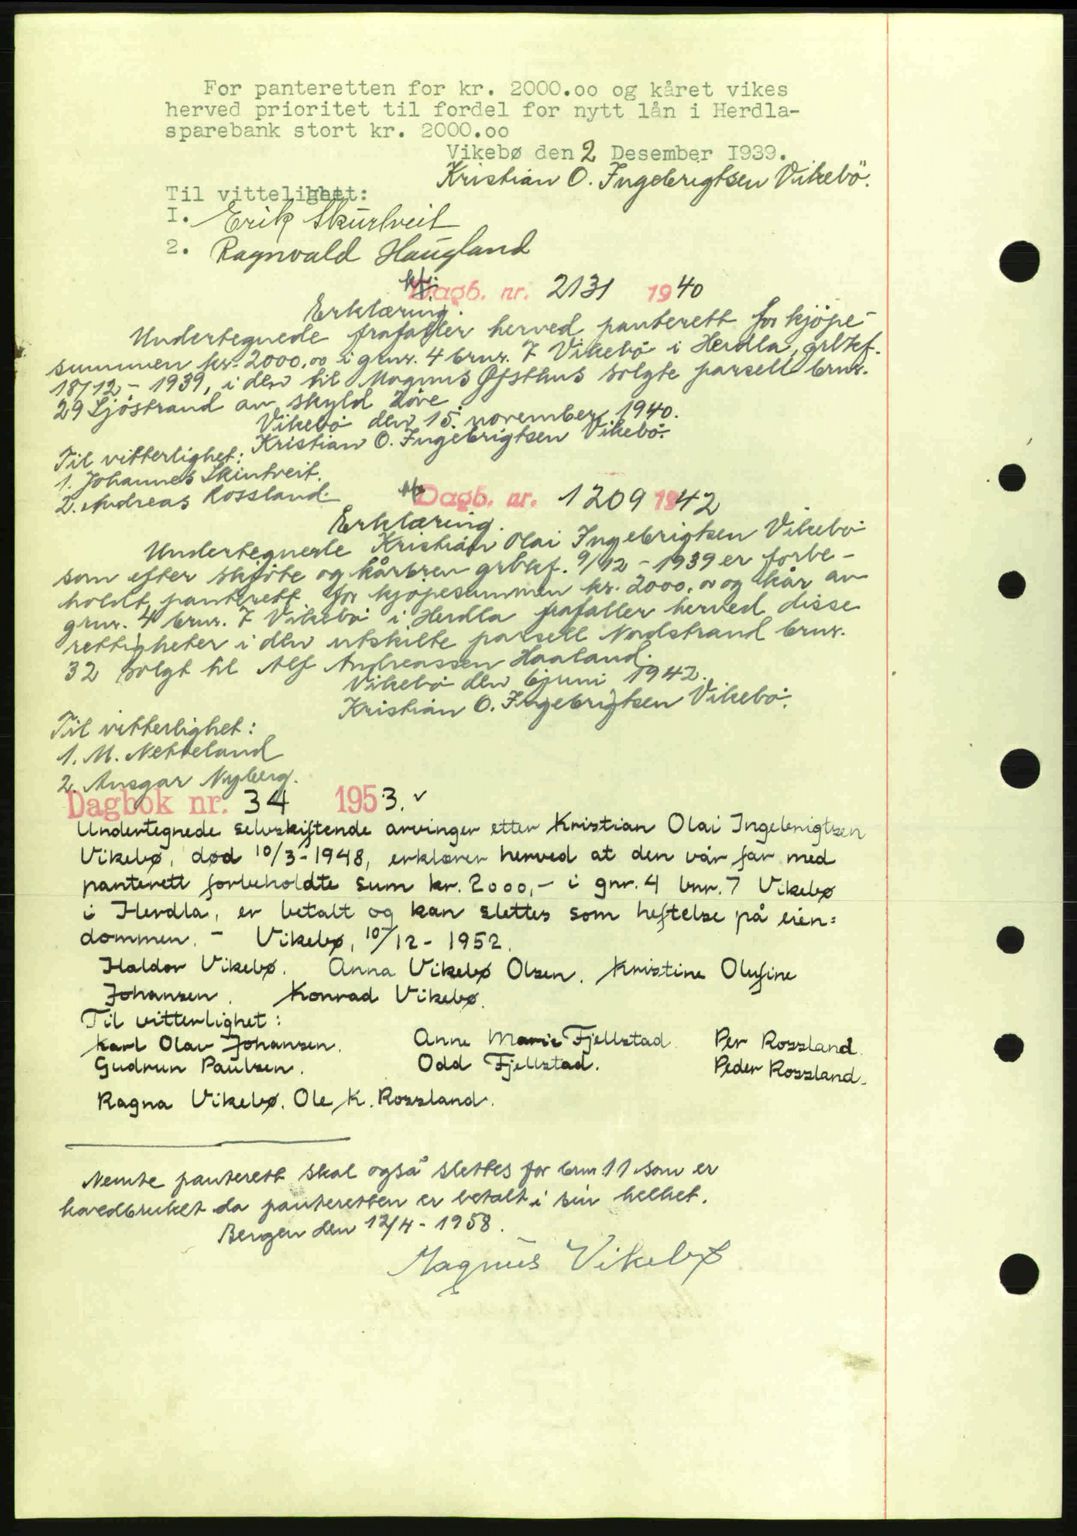 For panteretten for kr. 2000.oo og kåret vikes
herved prioritet til fordel for nytt lån i Herdla-
sparebank stort kr. 2000.oo
Vikebø den 2 Desember I939.
Kristian O. Ingebrigtsen Vikebö.
Til vittelighet:
I. Erik Skurtveit
2. Ragnvald Haugland
Dagb. nr. 2131 1940
Erklæring.
Undertegnede frafaller herved panterett for kjöpe-
summen kr. 2000,00 i grnr. 4 brnr. 7 Vikebö i Herdla, grbkf.
18/12 - 1939, i den til Magnus Øfsthus solgte parsell brnr.
29 Sjöstrand av skyld 20re.
Vikebö den 15. november 1940.
Kristian O. Ingebrigtsen Vikebö.
Til vitterlighet:
1. Johannes Skintveit.
2. Andreas Rossland.
Dagb. nr. 1209 1942
Erklæring.
Undertegnede Kristian Olai Ingebrigtsen Vikebö
som efter skjöte og kårbrev grbkf. 9/12 - 1939 er forbe-
holdt panterett for kjöpesummen kr. 2000,00 og kår av
grnr. 4 brnr. 7 Vikebö i Herdla frafaller herved disse
rettigheter i den utskilte parsell Nordstrand brnr.
32 solgt til Alf Andreassen Haaland.
Vikebö den 6 juni 1942.
Kristian O. Ingebrigtsen Vikebö.
Til vitterlighet:
1. M. Netteland
2. Ansgar Nyberg.
Dagbok nr. 34 1953.
Undertegnede selvskiftende arvinger etter Kristian Olai Ingebrigtsen
Vikebø, død 10/3-1948, erklærer herved at den vår far med
panterett forbeholdte sum kr. 2000,- i gnr. 4 bnr. 7 Vikebø
i Herdla, er betalt og kan slettes som heftelse på eien=
dommen. - Vikebø, 10/12 - 1952.
Haldor Vikebø. Anna Vikebø Olsen. Kristine Olufine
Johansen. Konrad Vikebø.
Til vitterlighet:
Karl Olav Johansen. Anne Marie Fjellstad Per Rossland.
Gudrun Paulsen. Odd Fjellstad. Peder Rossland.
Ragna Vikebø. Ole K. Rossland.
Nemte panterett skal også slettes for brnr 11 som er
hovedbruket da panteretten er betalt i sin helhet.
Bergen den 12/4 - 1958.
Magnus Vikebø